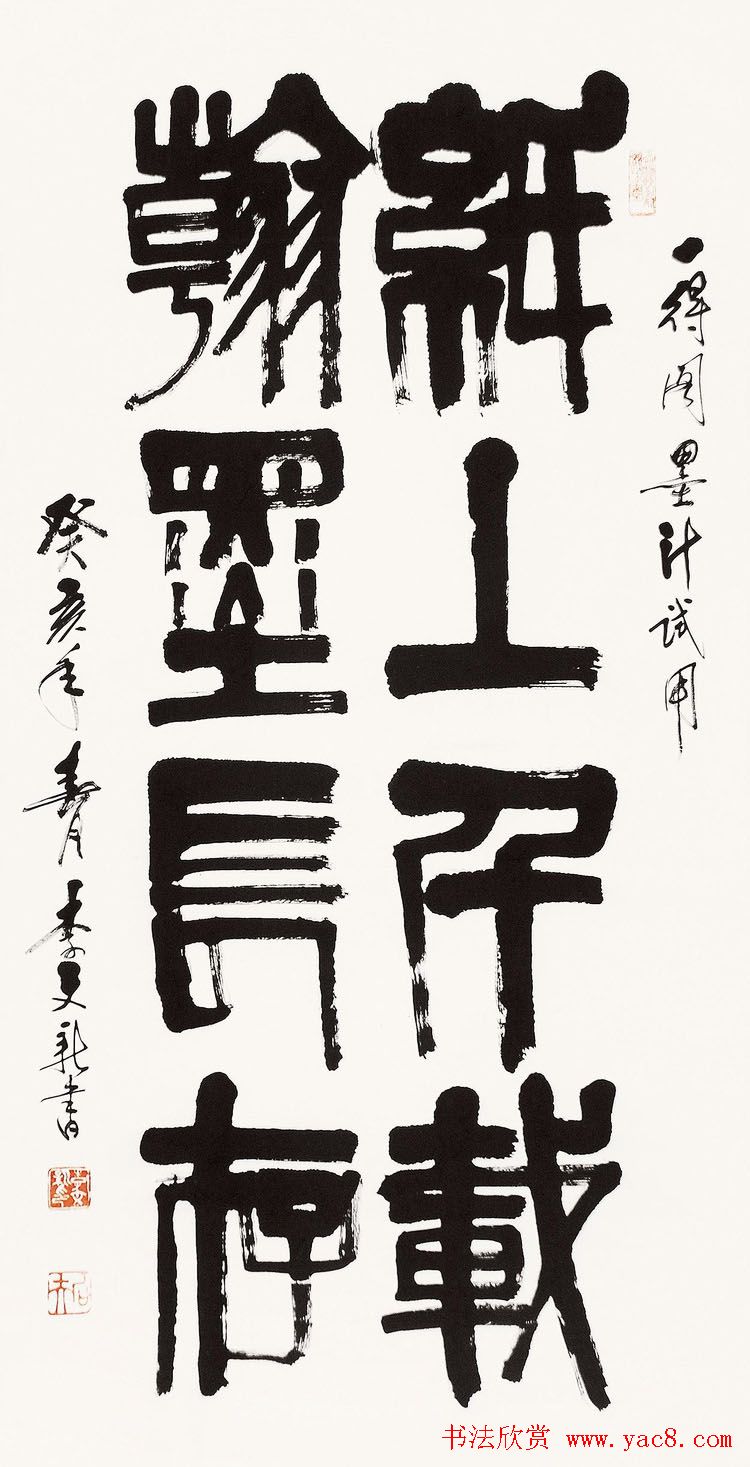 一得阁墨汁试用
紙上千載
翰墨長存
癸亥年春月李文新書
书法欣赏 www.yac8.com